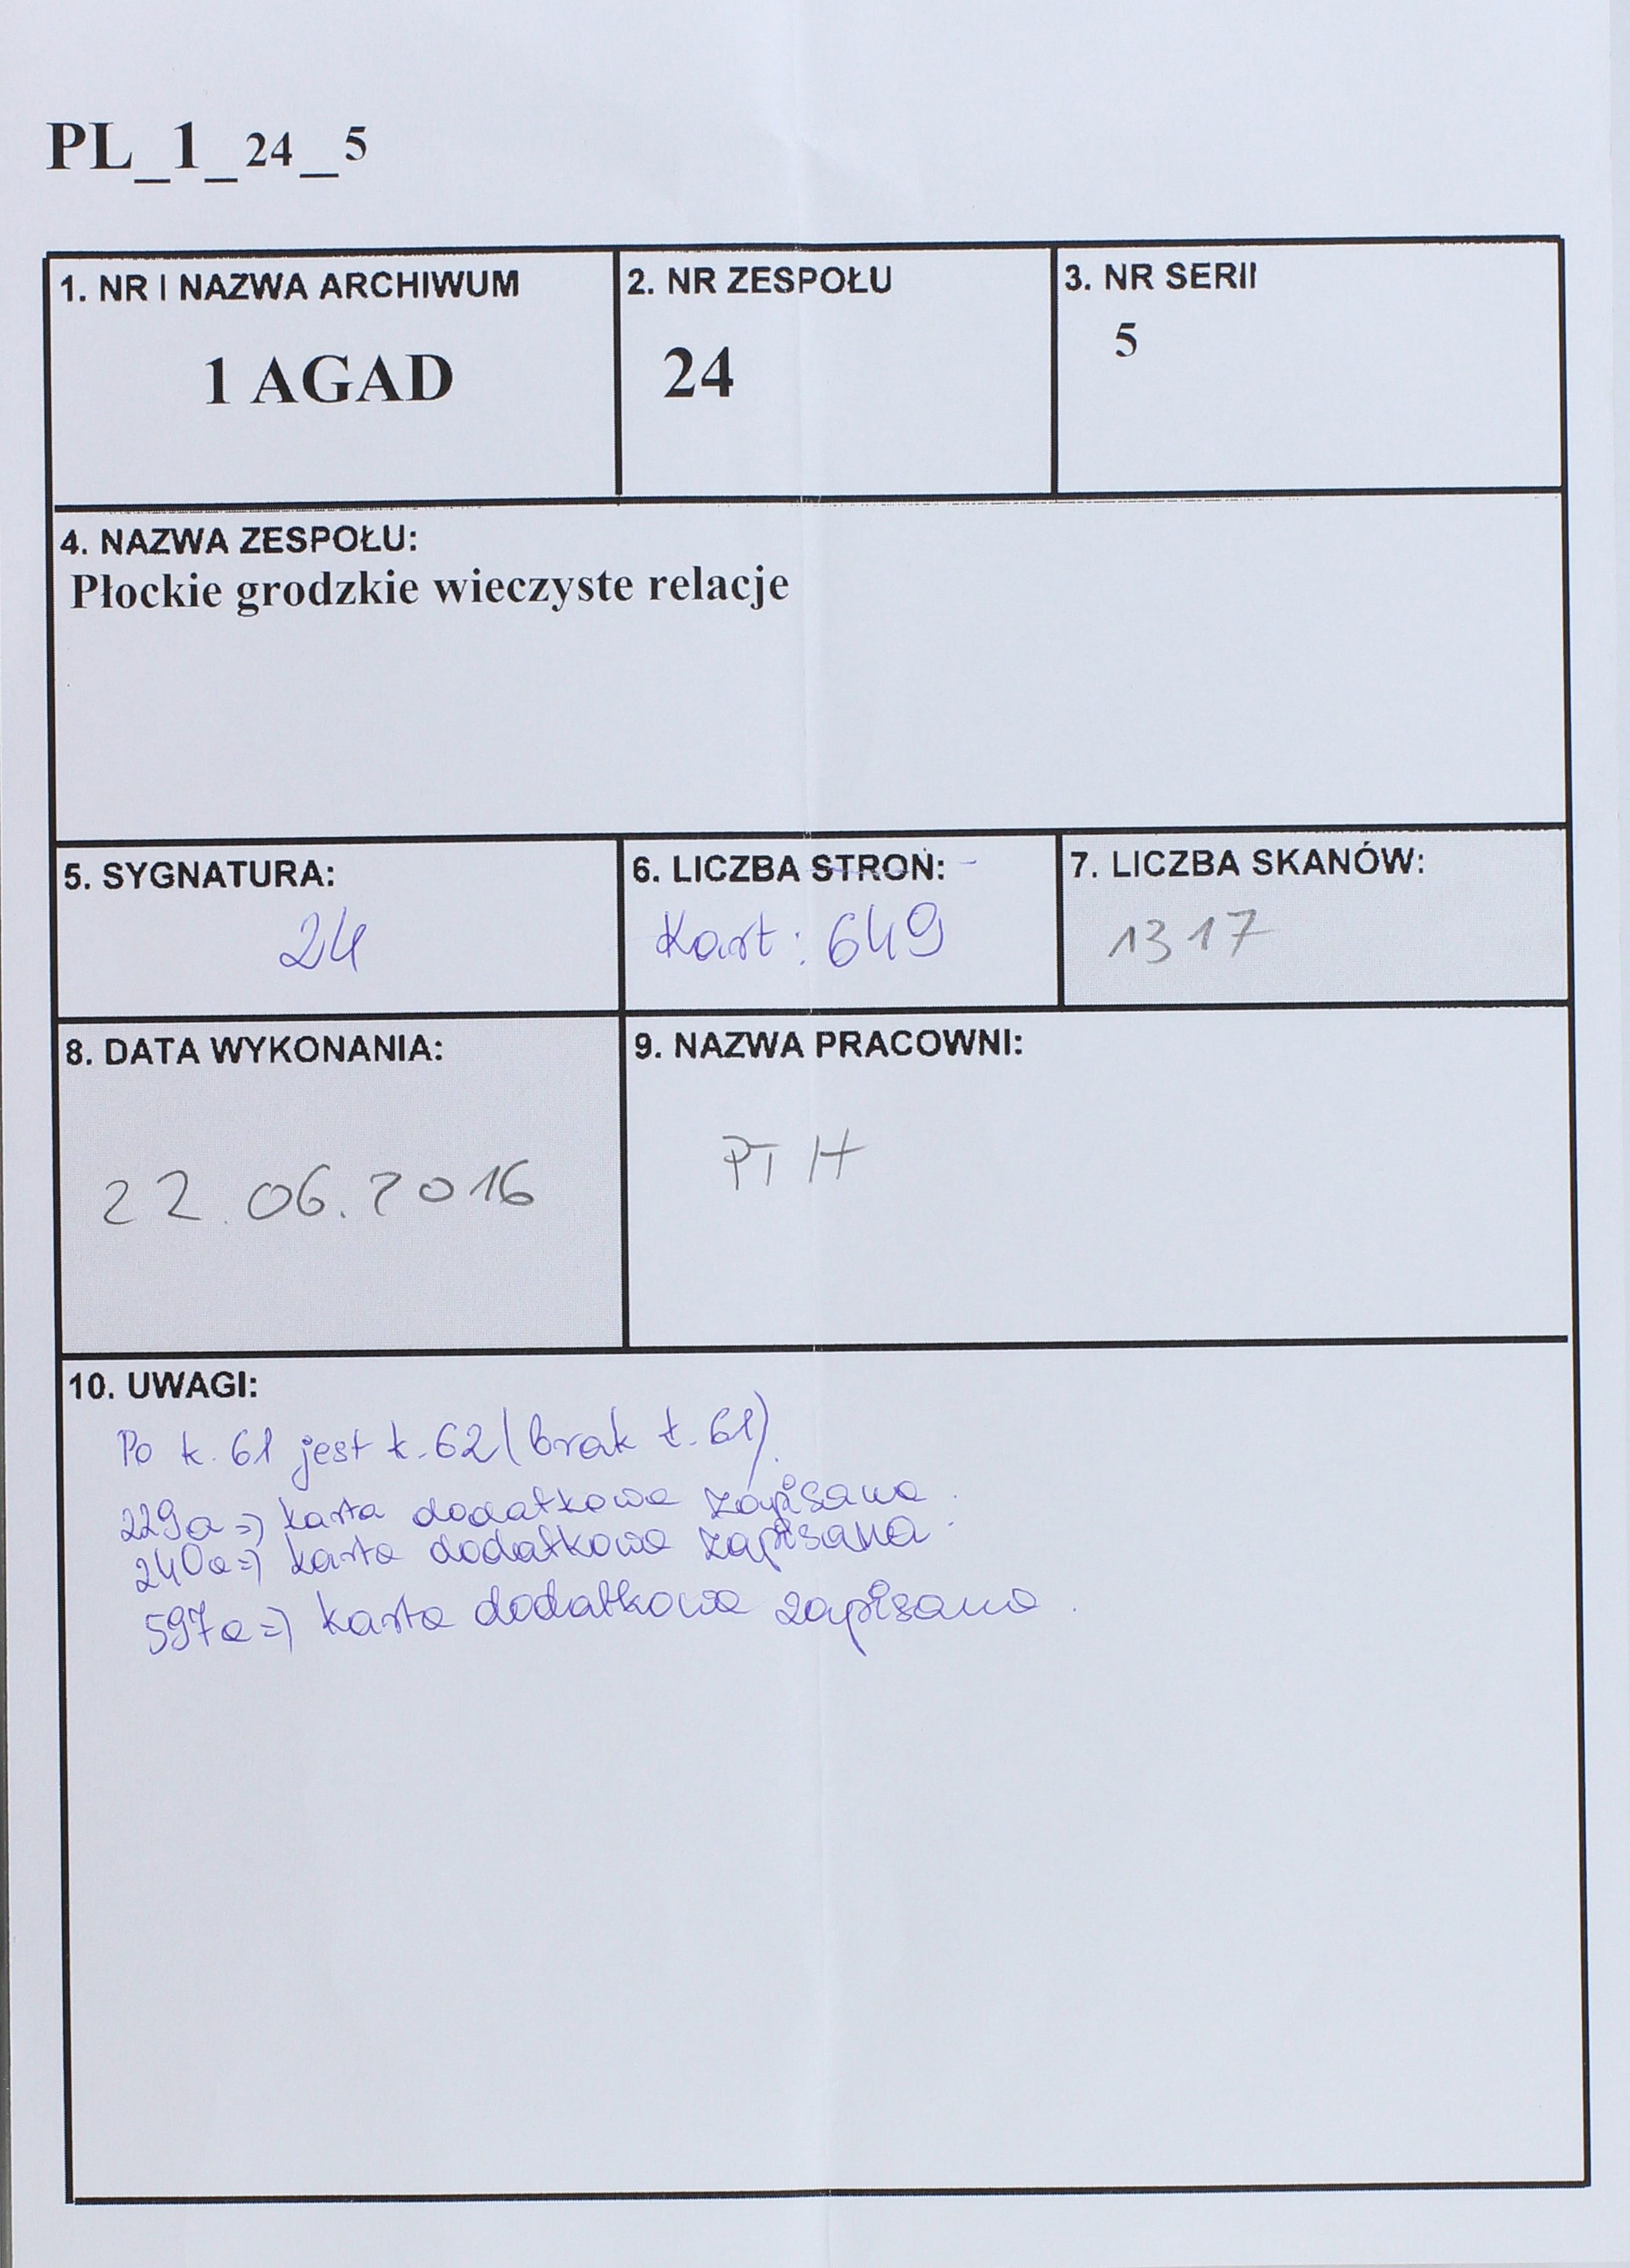 PL_1_24_5
1. NR I NAZWA ARCHIWUM
1 AGAD
2. NR ZESPOŁU
24
3. NR SERII
5
4. NAZWA ZESPOŁU:
Płockie grodzkie wieczyste relacje
5. SYGNATURA:
24
6. LICZBA STRON: -
Kart: 649
7. LICZBA SKANÓW:
1317
8. DATA WYKONANIA:
22.06.2016
9. NAZWA PRACOWNI:
PTH
10. UWAGI:
Po k. 61 jest k. 62 (brak k. 61).
229a => karta dodatkowa zapisana.
240a => karta dodatkowa zapisana.
597a => karta dodatkowa zapisana.